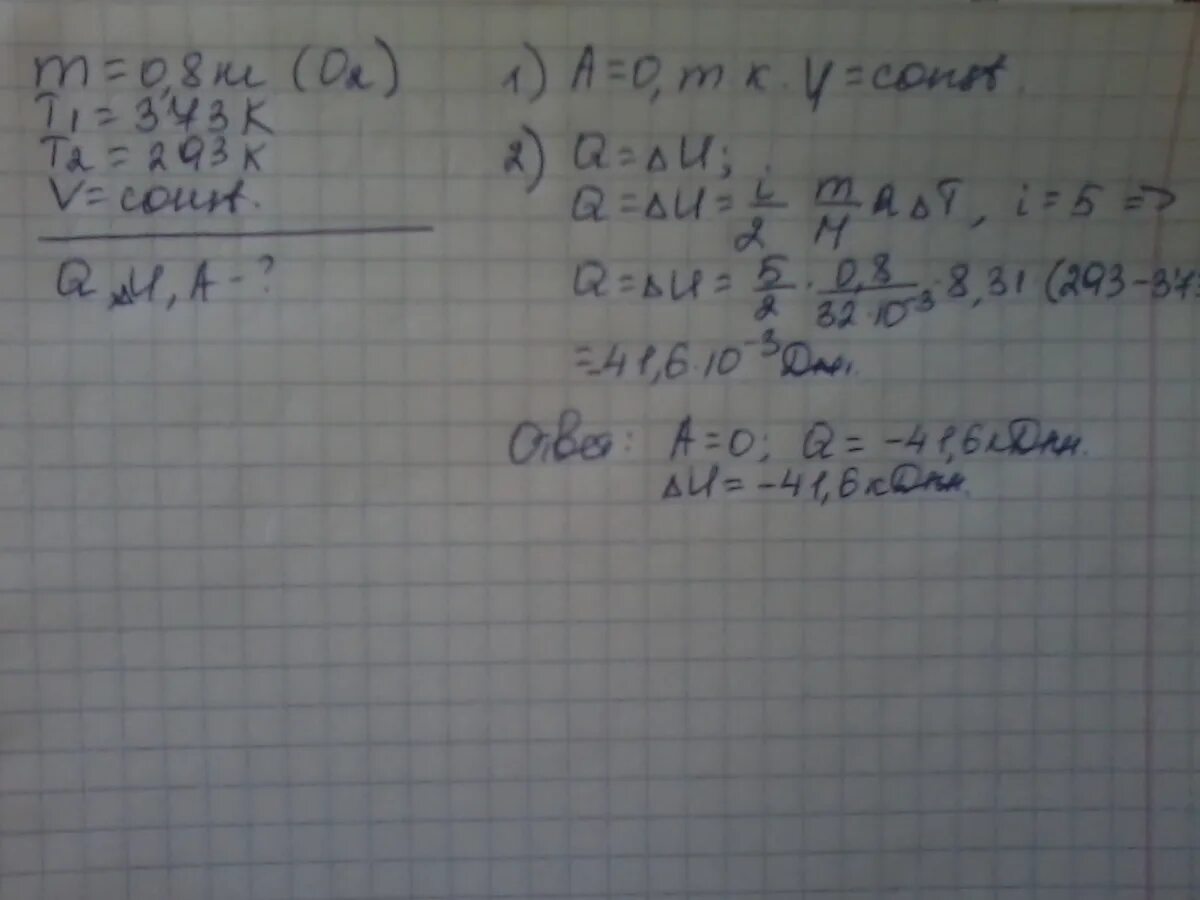 m = 0,8 кг (O₂)
T₁ = 373 K
T₂ = 293 K
V = const.
Q, ΔU, A - ?
1) A = 0, т к. V = const.
2) Q = ΔU;
Q = ΔU = i/2 m/M R ΔT, i = 5 =>
Q = ΔU = 5/2 · 0,8/32·10⁻³ · 8,31 (293 - 373
= -41,6·10⁻³ Дж.
Ответ: A = 0; Q = -41,6 кДж.
ΔU = -41,6 кДж.